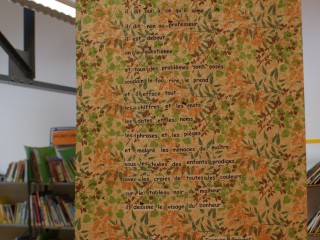 il dit oui à ce qu'il aime
il dit non au professeur
il est debout
on le questionne
et tous les problèmes sont posés
soudain le fou rire le prend
et il efface tout
les chiffres et les mots
les dates et les noms
les phrases et les pièges
et malgré les menaces du maître
sous les huées des enfants prodiges
avec les craies de toutes les couleurs
sur le tableau noir du malheur
il dessine le visage du bonheur